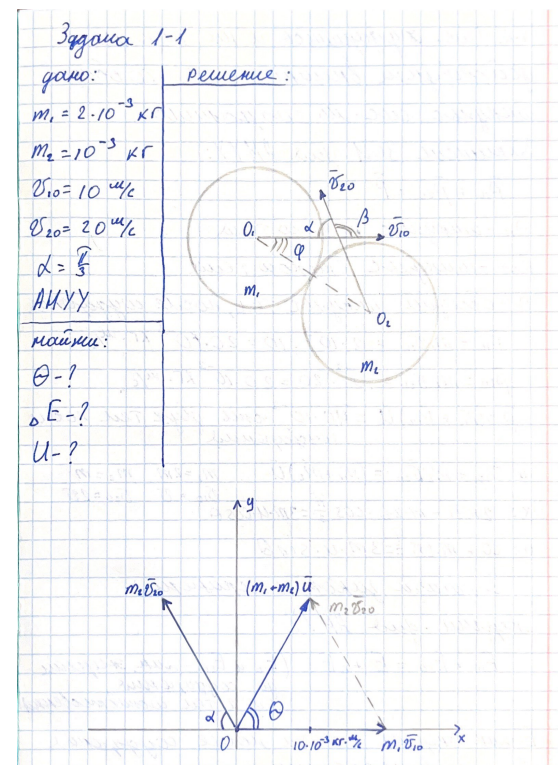 Здача 1-1
дано:
решение:
m₁ = 2·10⁻³ кг
m₂ = 10⁻³ кг
υ₁₀ = 10 м/с
υ₂₀ = 20 м/с
α = π/3
АНУУ
найти:
Θ - ?
△E - ?
U - ?
ῡ₂₀
O₁
α
β
ῡ₁₀
φ
m₁
O₂
m₂
y
m₂ῡ₂₀
(m₁+m₂)ū
m₂ῡ₂₀
α
Θ
O
10·10⁻³ кг·м/с
m₁ῡ₁₀
x